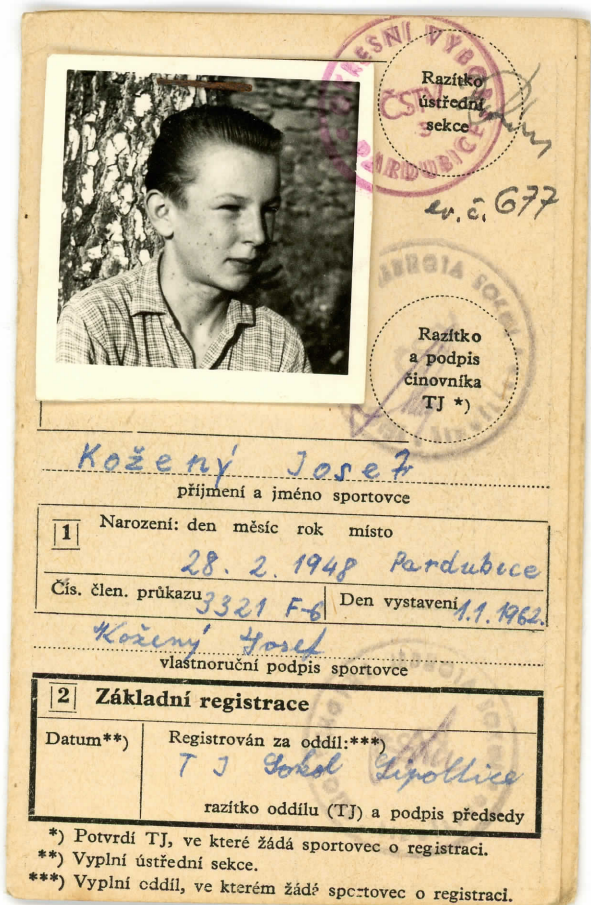 OKRESNÍ VÝBOR
ČSTV
3
PARDUBICE
Razítko
ústřední
sekce
ev. č. 677
Razítko
a podpis
činovníka
TJ *)
Kožený Josef
příjmení a jméno sportovce
1 Narození: den měsíc rok místo
28. 2. 1948 Pardubice
Čís. člen. průkazu 3321 F-6 Den vystavení 1.1.1962.
Kožený Josef
vlastnoruční podpis sportovce
2 Základní registrace
Datum**) Registrován za oddíl:***)
TJ Sokol Lipoltice
razítko oddílu (TJ) a podpis předsedy
*) Potvrdí TJ, ve které žádá sportovec o registraci.
**) Vyplní ústřední sekce.
***) Vyplní oddíl, ve kterém žádá sportovec o registraci.